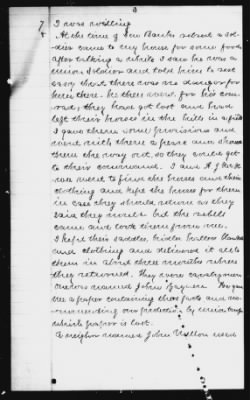 3
7 I was willing
At the time of Gen Banks retreat a sol-
dier came to my house for some food
after talking a while I saw he was a
union soldier and told him to rest
easy that there was no danger for
him there. he then went for his com-
rad, they have got lost and had
left their horses in the hills in a
I gave them some provisions and
went with them a piece and show
them the way out, so they could get
to their command. I and
we went to find the horses and their
clothing and kept the horses for them
in case they should return as they
said they might but the rebels
came and took them from me.
I kept their saddles, bridles, holsters blankets
and clothing and delivered it all
them in about three months when
they returned. They were cavalrymen
one was named John He gave
me a paper containing these facts and recom-
mending me protection by union troops
which paper is lost.
A neighbor named John was